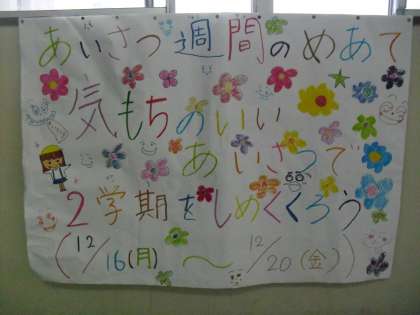 あいさつ週間のめあて
気もちのいい
あいさつで
2学期をしめくくろう
(12/16(月)～12/20(金))